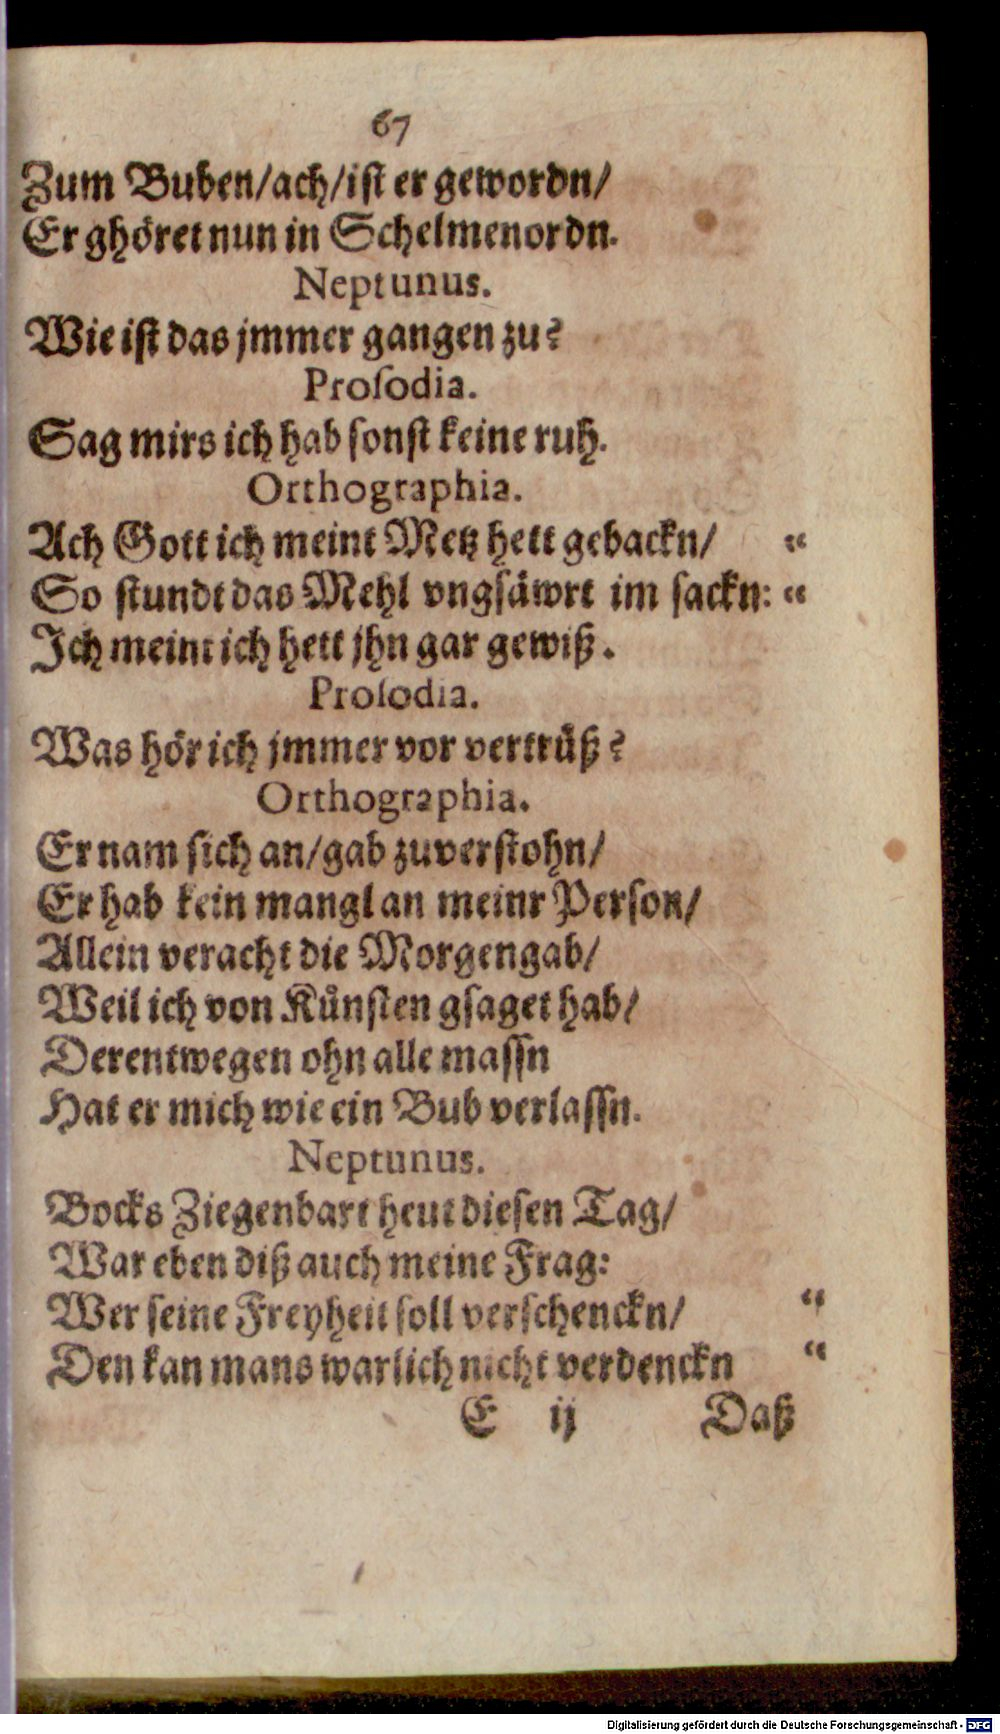 67
Zum Buben/ach/ist er gewordn/
Er ghöret nun in Schelmenordn.
Neptunus.
Wie ist das jmmer gangen zu?
Proſodia.
Sag mirs ich hab sonst keine ruh.
Orthographia.
Ach Gott ich meint Metz hett gebackn/ "
So stundt das Mehl vngsäwrt im sackn: "
Ich meint ich hett jhn gar gewiß.
Proſodia.
Was hör ich jmmer vor vertrüß?
Orthographia.
Er nam sich an/gab zuverstohn/
Er hab kein mangl an meinr Person/
Allein veracht die Morgengab/
Weil ich von Künsten gsaget hab/
Derentwegen ohn alle massn
Hat er mich wie ein Bub verlassn.
Neptunus.
Bocks Ziegenbart heut diesen Tag/
War eben diß auch meine Frag:
Wer seine Freyheit soll verschenckn/ "
Den kan mans warlich nicht verdenckn "
E ij Daß
Digitalisierung gefördert durch die Deutsche Forschungsgemeinschaft - DFG